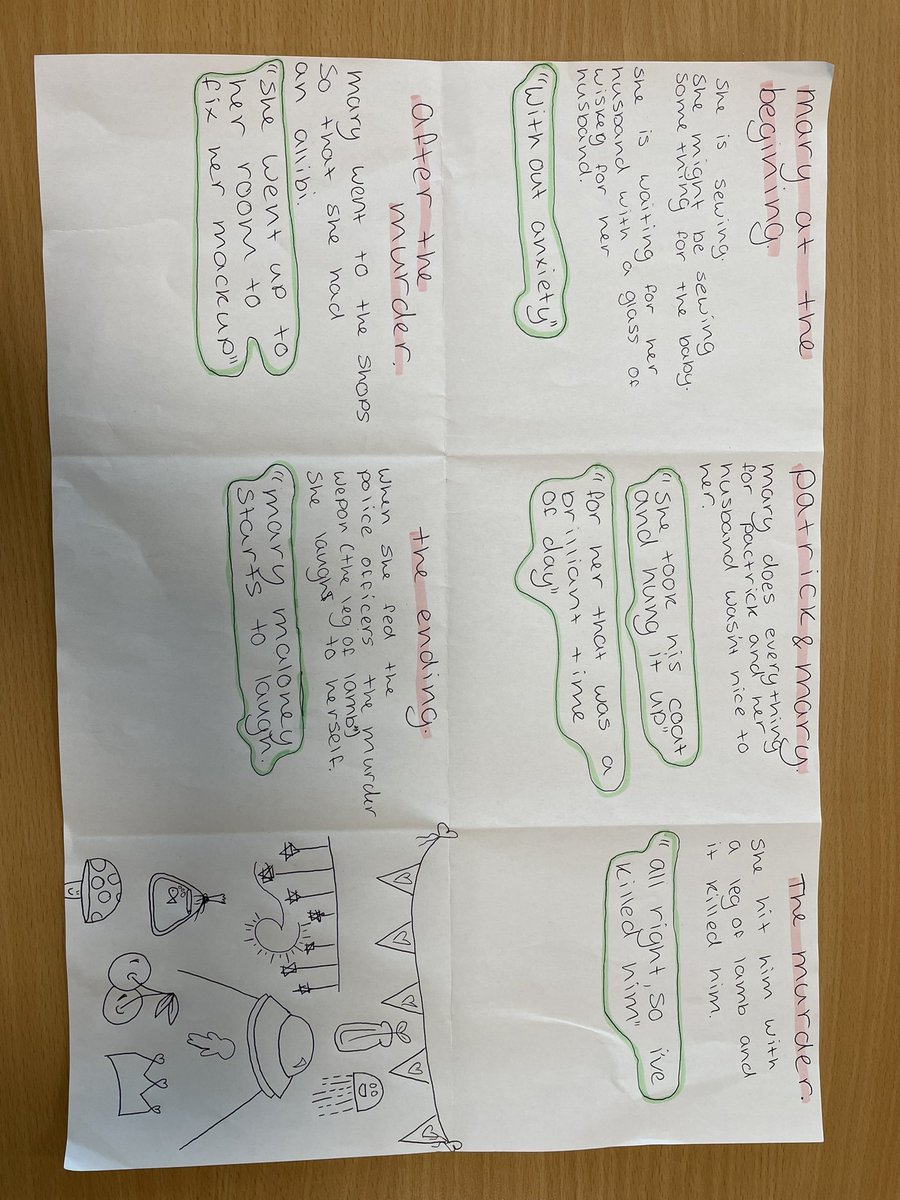 mary at the
begining.
She is sewing.
She might be sewing
something for the baby.
she is waiting for her
husband with a glass of
wiskey for her
husband.
"with out anxiety"
patrick & mary.
mary does everything
for pactrick and her
husband wasnt nice to
her.
"she took his coat
and hung it up"
"for her that was a
brilliant time
of day"
The murder.
She hit him with
a leg of lamb and
it killed him.
"all right, so ive
killed him"
after the
murder.
mary went to the shops
so that she had
an alibi.
"she went up to
her room to
fix her mackup"
the ending.
when she fed the
police officers the murder
wepon (the leg of lamb)
She laughs to herself.
"mary maloney
starts to laugh.